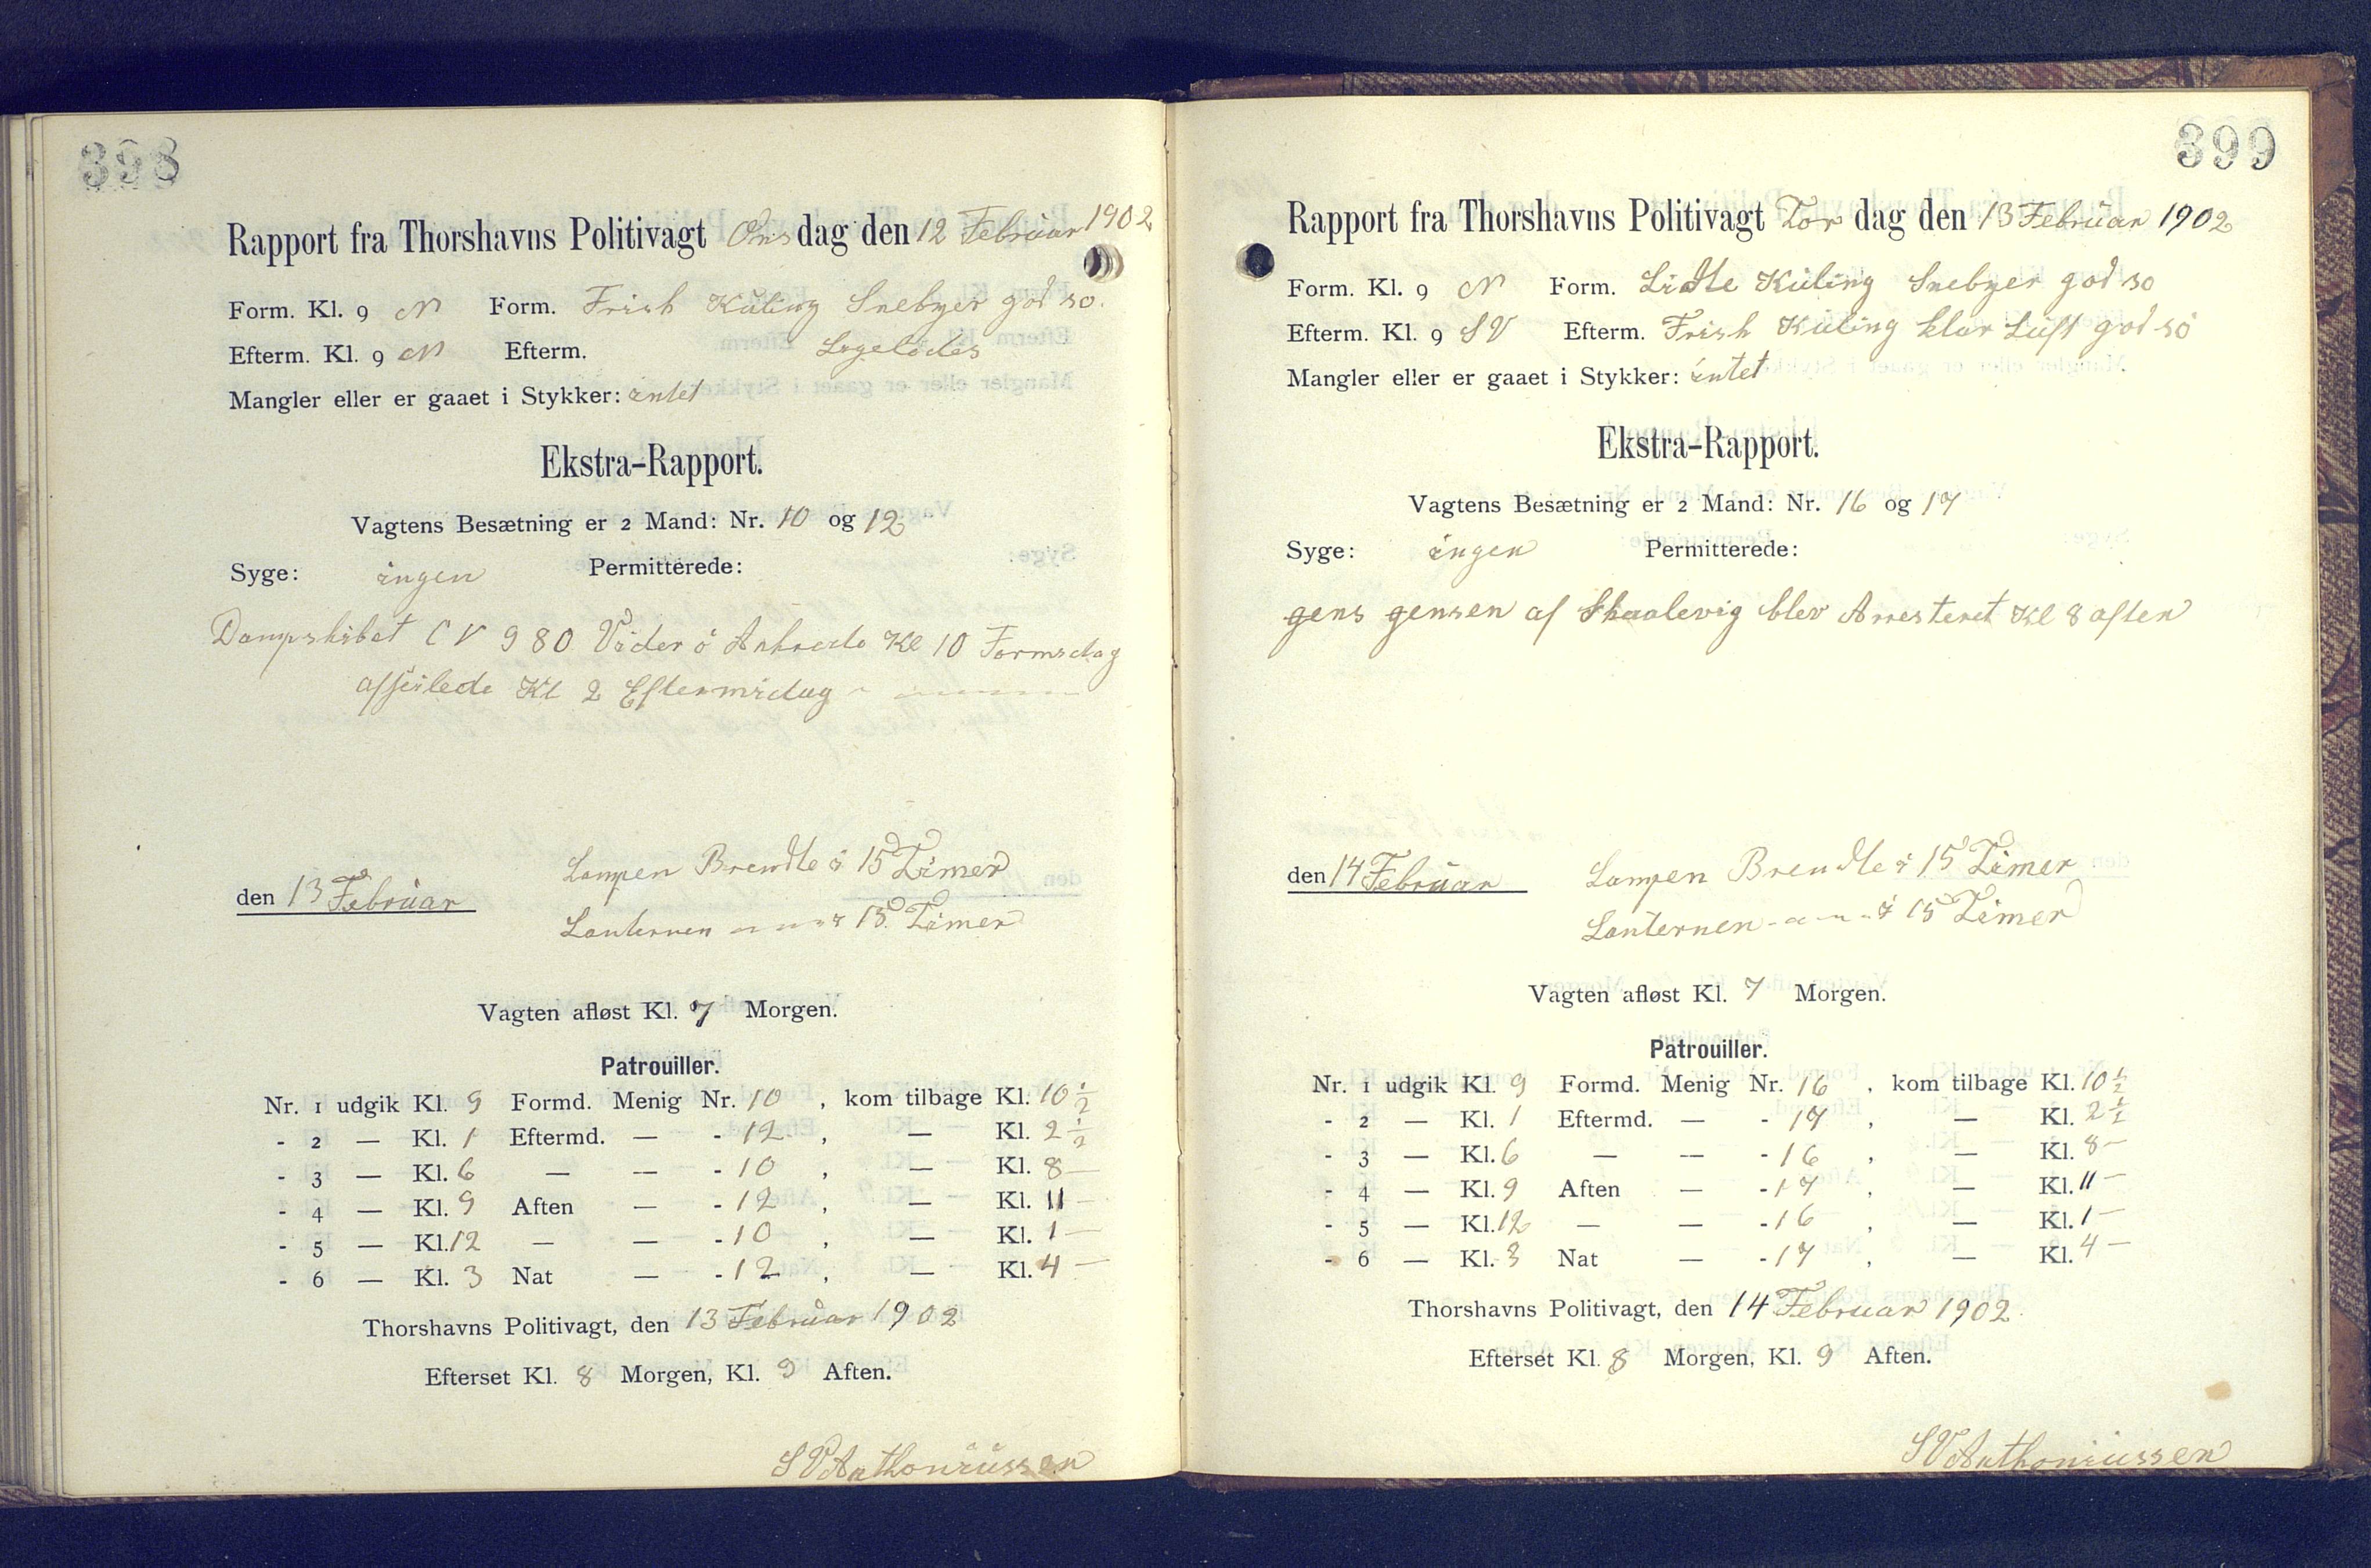 398
Rapport fra Thorshavns Politivagt Onsdag den 12 Februar 1902
Form. Kl. 9 N Form. Frish Kuling Snebyer god so.
Efterm. Kl. 9 N Efterm. Ligelödes
Mangler eller er gaaet i Stykker: intet
Ekstra-Rapport.
Vagtens Besætning er 2 Mand: Nr. 10 og 12
Syge: ingen Permitterede:
Dampskibet C V 980 Viderö Ankrede Kl 10 Formidag
afseilede Kl 2 Eftermidag
den 13 Februar
Lampen Brendte i 15 Timer
Lanternen — " — " i 15. Timer
Vagten afløst Kl. 7 Morgen.
Patrouiller.
Nr. 1 udgik Kl. 9 Formd. Menig Nr. 10 , kom tilbage Kl. 10 ½
- 2 — Kl. 1 Eftermd. — - 12 , — Kl. 2 ½
- 3 — Kl. 6 — — - 10 , — Kl. 8 —
- 4 — Kl. 9 Aften — - 12 , — Kl. 11 —
- 5 — Kl. 12 — — - 10 , — Kl. 1 —
- 6 — Kl. 3 Nat — - 12 , — Kl. 4 —
Thorshavns Politivagt, den 13 Februar 1902
Efterset Kl. 8 Morgen, Kl. 9 Aften.
S V Anthoniussen
399
Rapport fra Thorshavns Politivagt Tor dag den 13 Februar 1902
Form. Kl. 9 N Form. Lidte Kuling Snebyer god so
Efterm. Kl. 9 SV Efterm. Frish Kuling klar Luft god so
Mangler eller er gaaet i Stykker: intet
Ekstra-Rapport.
Vagtens Besætning er 2 Mand: Nr. 16 og 17
Syge: ingen Permitterede:
gens gensen af Skaalevig blev Arresteret Kl 8 aften
den 14 Februar
Lampen Brendte i 15 Timer
Lanternen - " - " - i 15 Timer
Vagten afløst Kl. 7 Morgen.
Patrouiller.
Nr. 1 udgik Kl. 9 Formd. Menig Nr. 16 , kom tilbage Kl. 10 ½
- 2 — Kl. 1 Eftermd. — - 17 , — Kl. 2 ½
- 3 — Kl. 6 — — - 16 , — Kl. 8 —
- 4 — Kl. 9 Aften — - 17 , — Kl. 11 —
- 5 — Kl. 12 — — - 16 , — Kl. 1 —
- 6 — Kl. 3 Nat — - 17 , — Kl. 4 —
Thorshavns Politivagt, den 14 Februar 1902.
Efterset Kl. 8 Morgen, Kl. 9 Aften.
S V Anthoniussen